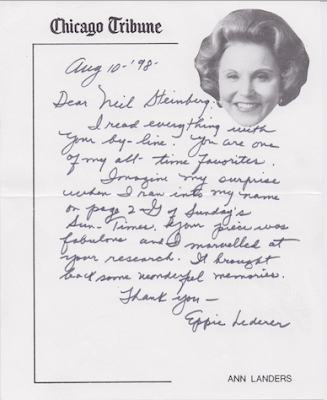 Chicago Tribune
Aug 10-'98-
Dear Neil Steinberg:
I read everything with
your by-line. You are one
of my all-time favorites.
Imagine my surprise
when I ran into my name
on page 2-G of Sunday's
Sun-Times. Your piece was
fabulous and I marvelled at
your research. It brought
back some wonderful memories.
Thank you—
Eppie Lederer
ANN LANDERS